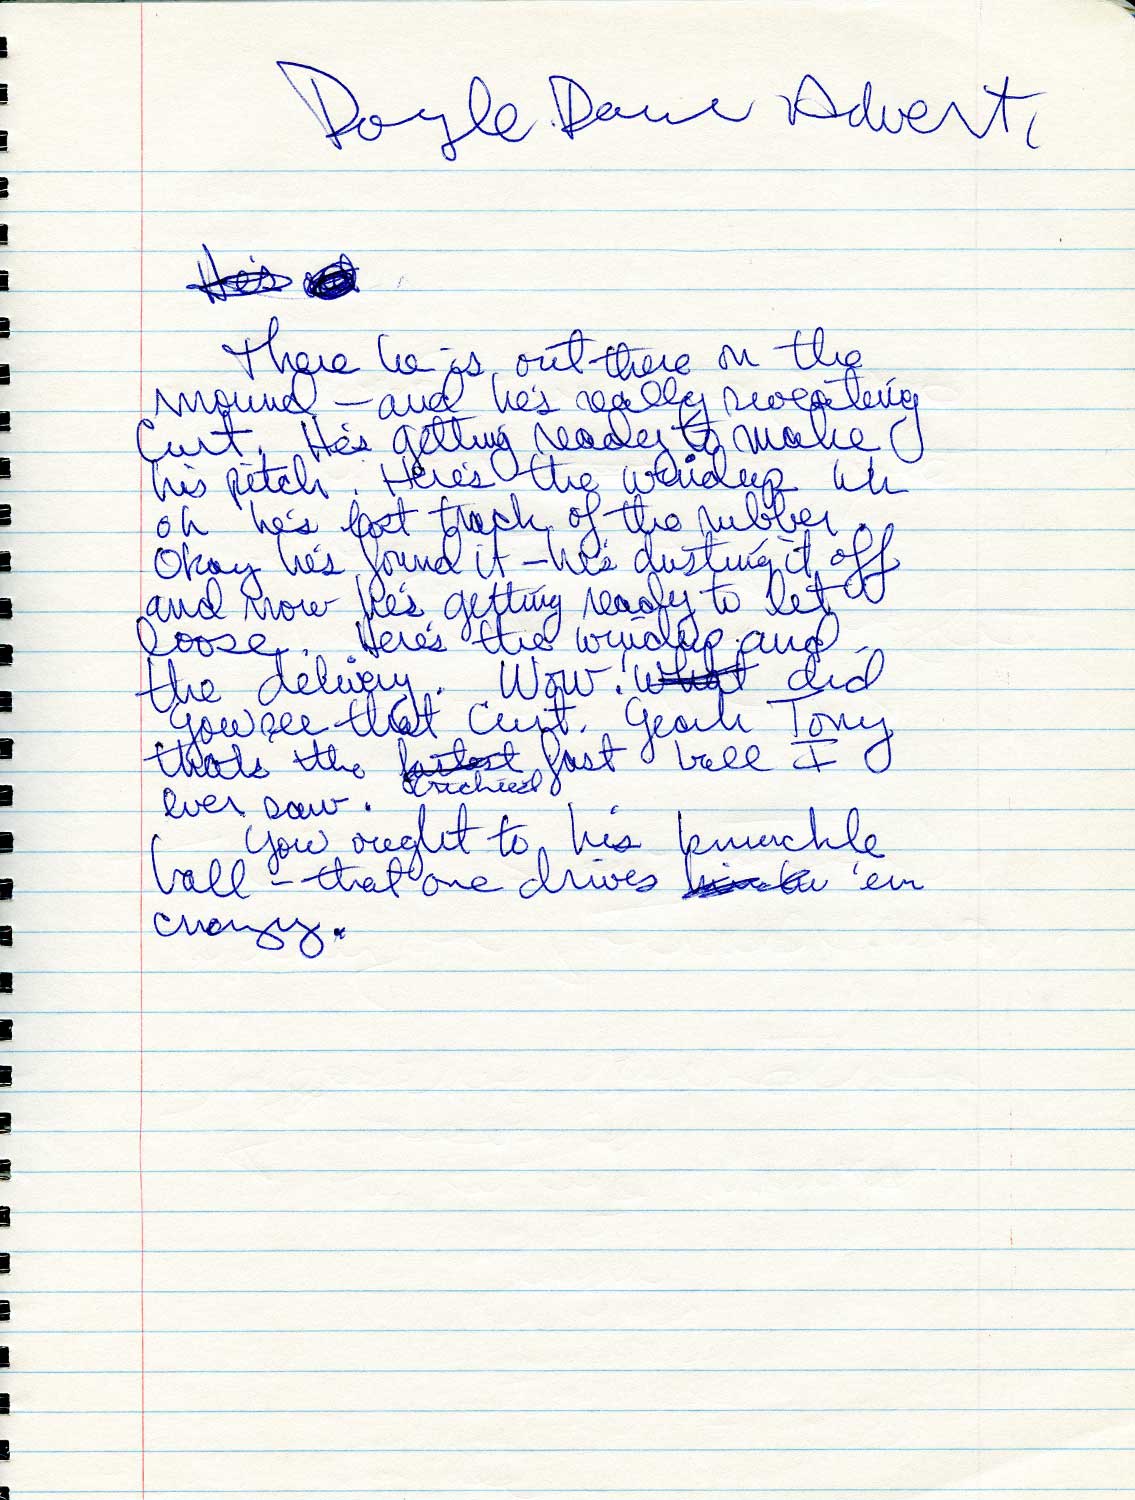 Doyle Dane Advert,
He's
There he is out there on the
mound – and he's really sweating
Curt. He's getting ready to make
his pitch. Here's the windup uh
oh he's lost track of the rubber.
Okay he's found it – he's dusting it off
and now he's getting ready to let
loose. Here's the windup and
the delivery. Wow! what did
you see that Curt. Yeah Tony
that's the fastest fast ball I
ever saw.
You ought to his knuckle
ball – that one drives 'em
crazy.